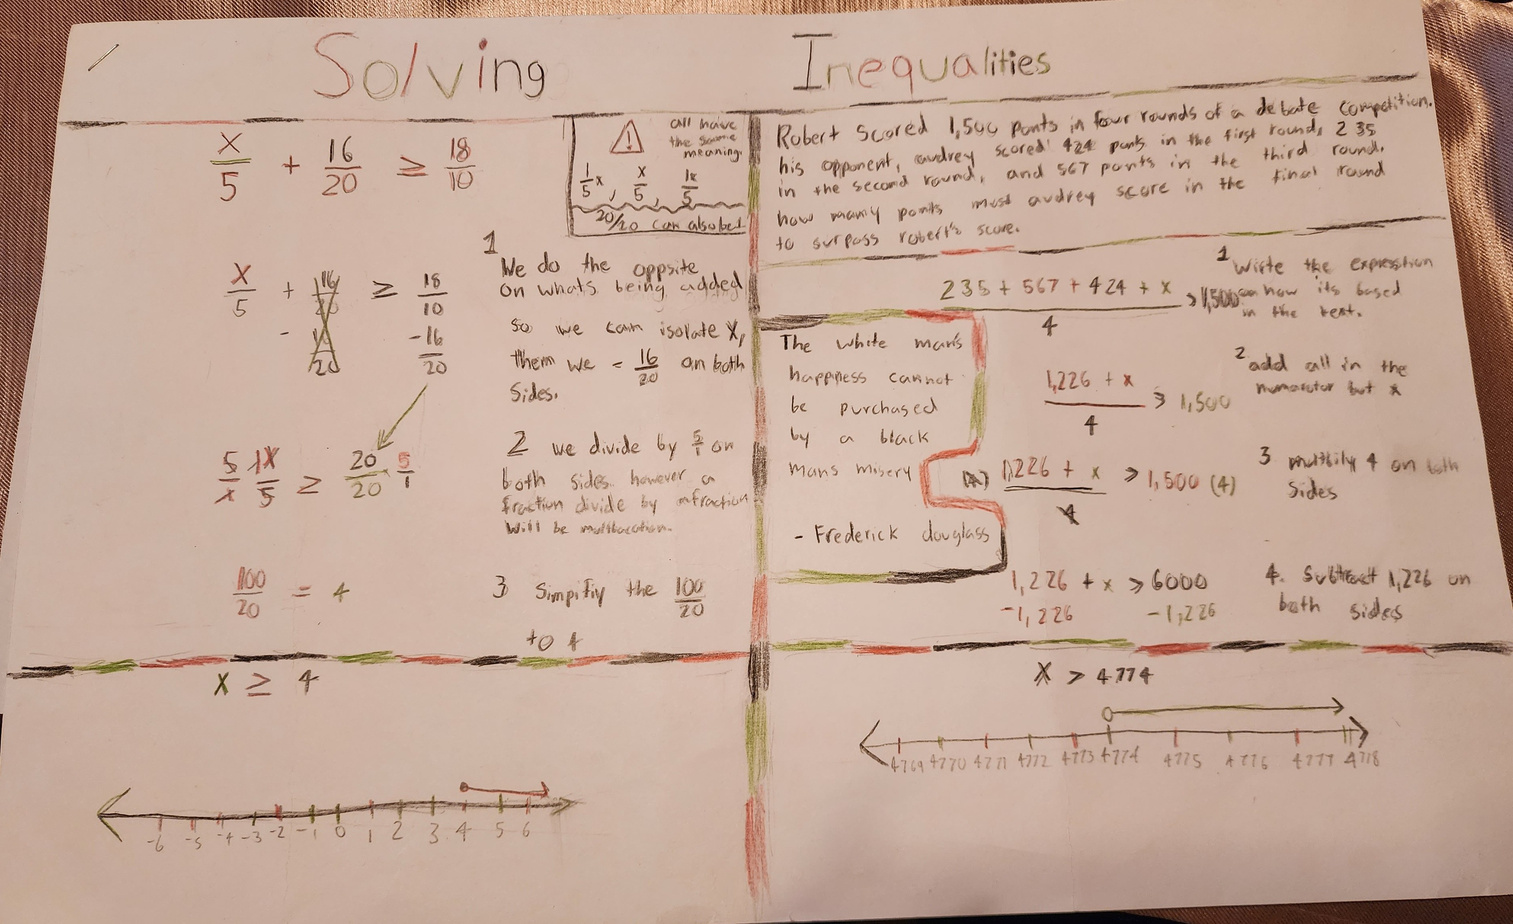 Solving Inequalities
x/5 + 16/20 ≥ 18/10
all have
the same
meaning.
1/5 x , x/5 , 1x/5
20/20 can also be 1
x/5 + 16/20 ≥ 18/10
- 16/20 -16/20
1
We do the opposite
on whats being added
so we can isolate x,
them we - 16/20 on both
sides.
5/x 1x/5 ≥ 20/20 5/1
2 we divide by 5/1 on
both sides however a
fraction divide by a fraction
will be
100/20 = 4
3 Simpifiy the 100/20
to 4
x ≥ 4
-6 -5 -4 -3 -2 -1 0 1 2 3 4 5 6
Robert Scored 1,500 ponts in four rounds of a debate competition.
his opponent, audrey scored 424 ponts in the first round, 235
in the second round, and 567 points in the third round.
how many points must audrey score in the final round
to surpass robert's score.
235 + 567 + 424 + x / 4 > 1,500
1 Wirte the expression
on how its based
in the text.
The white man's
happness cannot
be purchased
by a black
mans misery
- Frederick douglass
1,226 + x / 4 > 1,500
2 add all in the
numorator but x
(4) 1,226 + x / 4 > 1,500 (4)
3 multbily 4 on both
sides
1,226 + x > 6000
-1,226 -1,226
4. Subtract 1,226 on
both sides
x > 4774
4769 4770 4771 4772 4773 4774 4775 4776 4777 4778